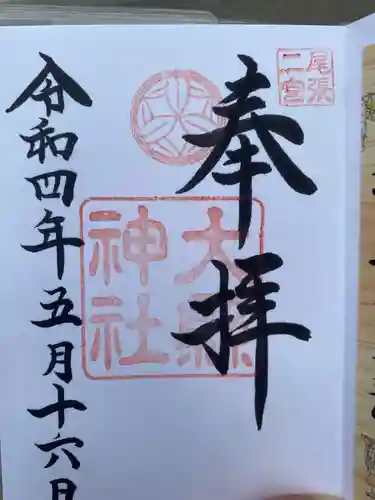 尾張
二宮
奉拝
大縣
神社
令和四年五月十六日